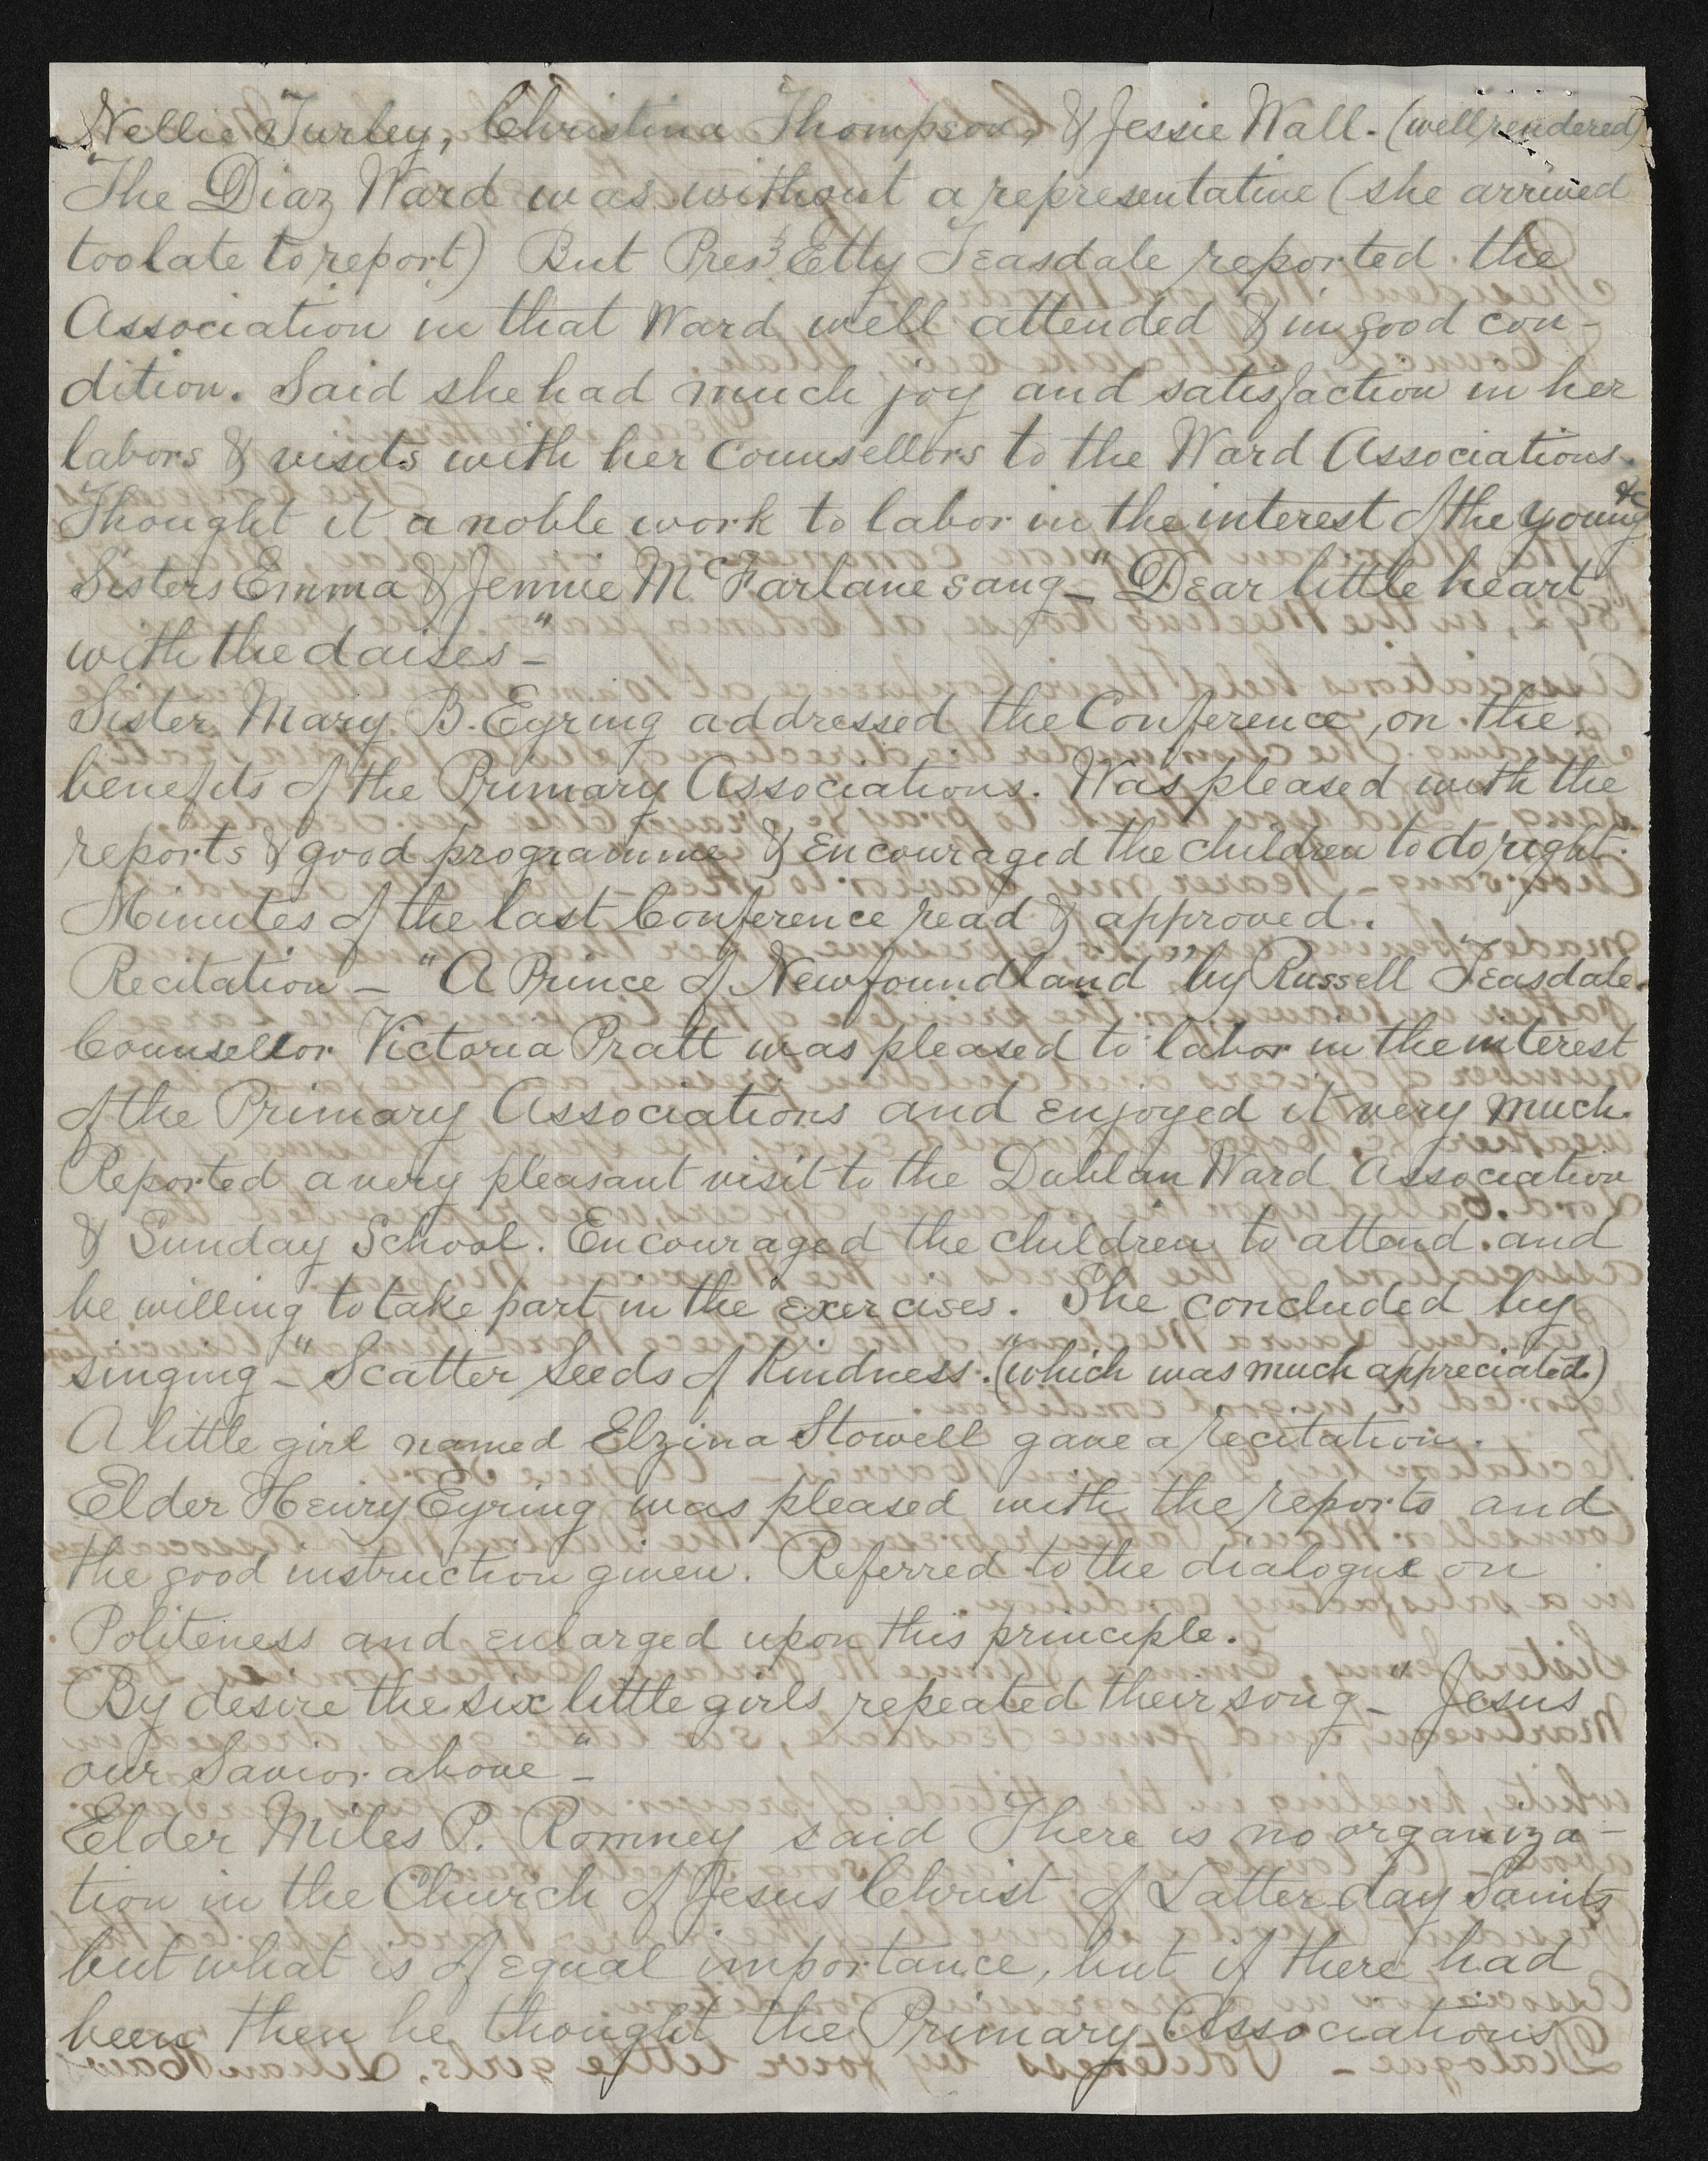 Nellie Turley, Christina Thompson, & Jessie Wall. (well rendered)
The Diaz Ward was without a representative (she arrived
too late to report) But Pres't Etty Teasdale reported the
Association in that Ward well attended & in good con-
dition. Said she had much joy and satisfaction in her
labors & visits with her Counsellors to the Ward Associations.
Thought it a noble work to labor in the interest of the young &c
Sisters Emma & Jennie McFarlane sang - "Dear little heart
with the daises" -
Sister Mary B. Eyring addressed the Conference, on the
benefits of the Primary Associations. Was pleased with the
reports & good programme & Encouraged the children to do right.
Minutes of the last Conference read & approved.
Recitation - "A Prince of Newfoundland" by Russell Teasdale.
Counsellor Victoria Pratt was pleased to labor in the interest
of the Primary Associations and enjoyed it very much.
Reported a very pleasant visit to the Dublan Ward Association
& Sunday School. Encouraged the children to attend and
be willing to take part in the exercises. She concluded by
singing - "Scatter Seeds of Kindness". (which was much appreciated.)
A little girl named Elzina Stowell gave a recitation.
Elder Henry Eyring was pleased with the reports and
the good instruction given. Referred to the dialogue on
Politeness and enlarged upon this principle.
By desire the six little girls repeated their song - "Jesus
our Savior above" -
Elder Miles P. Romney said There is no organiza-
tion in the Church of Jesus Christ of Latter day Saints
but what is of equal importance, but if there had
been then he thought the Primary Associations